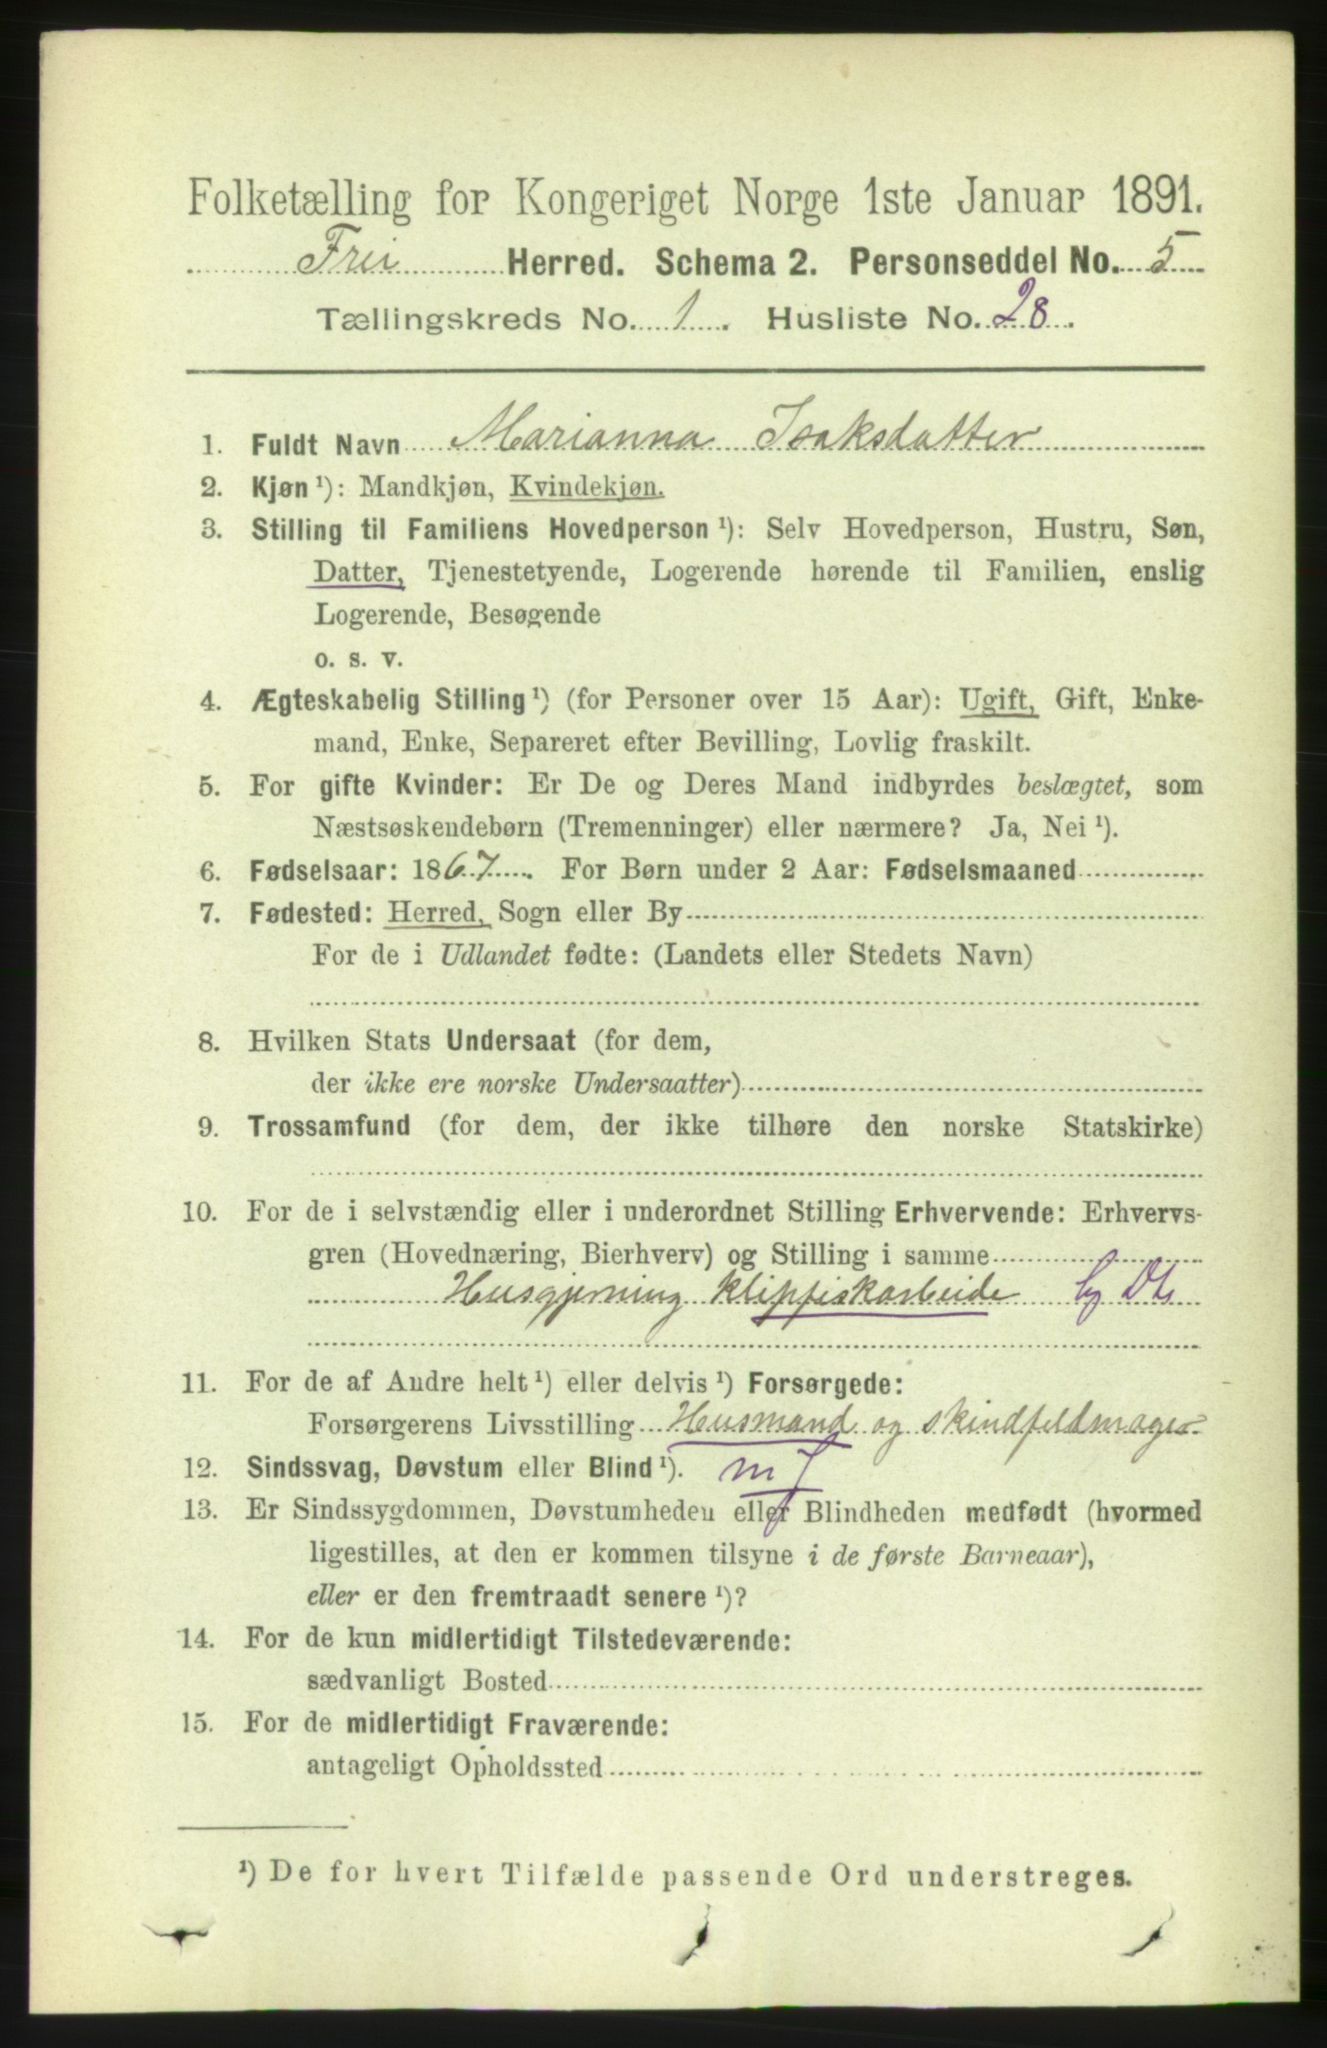 Folketælling for Kongeriget Norge 1ste Januar 1891.
Frei Herred. Schema 2. Personseddel No. 5
Tællingskreds No. 1. Husliste No. 28.
1. Fuldt Navn Marianna Isaksdatter
2. Kjøn ¹): Mandkjøn, Kvindekjøn.
3. Stilling til Familiens Hovedperson ¹): Selv Hovedperson, Hustru, Søn,
Datter, Tjenestetyende, Logerende hørende til Familien, enslig
Logerende, Besøgende
o. s. v.
4. Ægteskabelig Stilling ¹) (for Personer over 15 Aar): Ugift, Gift, Enke-
mand, Enke, Separeret efter Bevilling, Lovlig fraskilt.
5. For gifte Kvinder: Er De og Deres Mand indbyrdes beslægtet, som
Næstsøskendebørn (Tremenninger) eller nærmere? Ja, Nei ¹).
6. Fødselsaar: 1867. For Børn under 2 Aar: Fødselsmaaned
7. Fødested: Herred, Sogn eller By
For de i Udlandet fødte: (Landets eller Stedets Navn)
8. Hvilken Stats Undersaat (for dem,
der ikke ere norske Undersaatter)
9. Trossamfund (for dem, der ikke tilhøre den norske Statskirke)
10. For de i selvstændig eller i underordnet Stilling Erhvervende: Erhvervs-
gren (Hovednæring, Bierhverv) og Stilling i samme
Husgjerning klipfiskarbeide
11. For de af Andre helt ¹) eller delvis ¹) Forsørgede:
Forsørgerens Livsstilling Husmand og skindfeldmager
12. Sindssvag, Døvstum eller Blind ¹).
13. Er Sindssygdommen, Døvstumheden eller Blindheden medfødt (hvormed
ligestilles, at den er kommen tilsyne i de første Barneaar),
eller er den fremtraadt senere ¹)?
14. For de kun midlertidigt Tilstedeværende:
sædvanligt Bosted
15. For de midlertidigt Fraværende:
antageligt Opholdssted
¹) De for hvert Tilfælde passende Ord understreges.